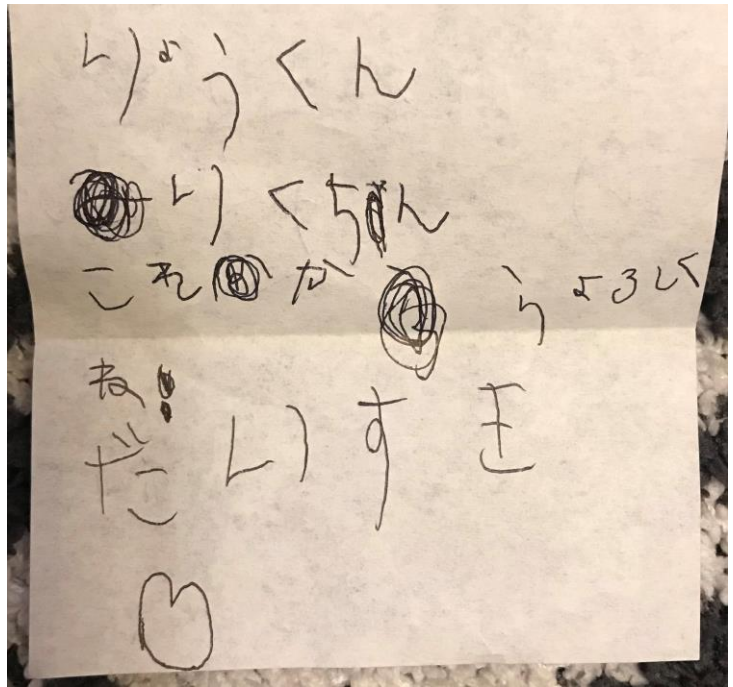 りょうくん
りくちん
これからよろしく
ね!
だいすき